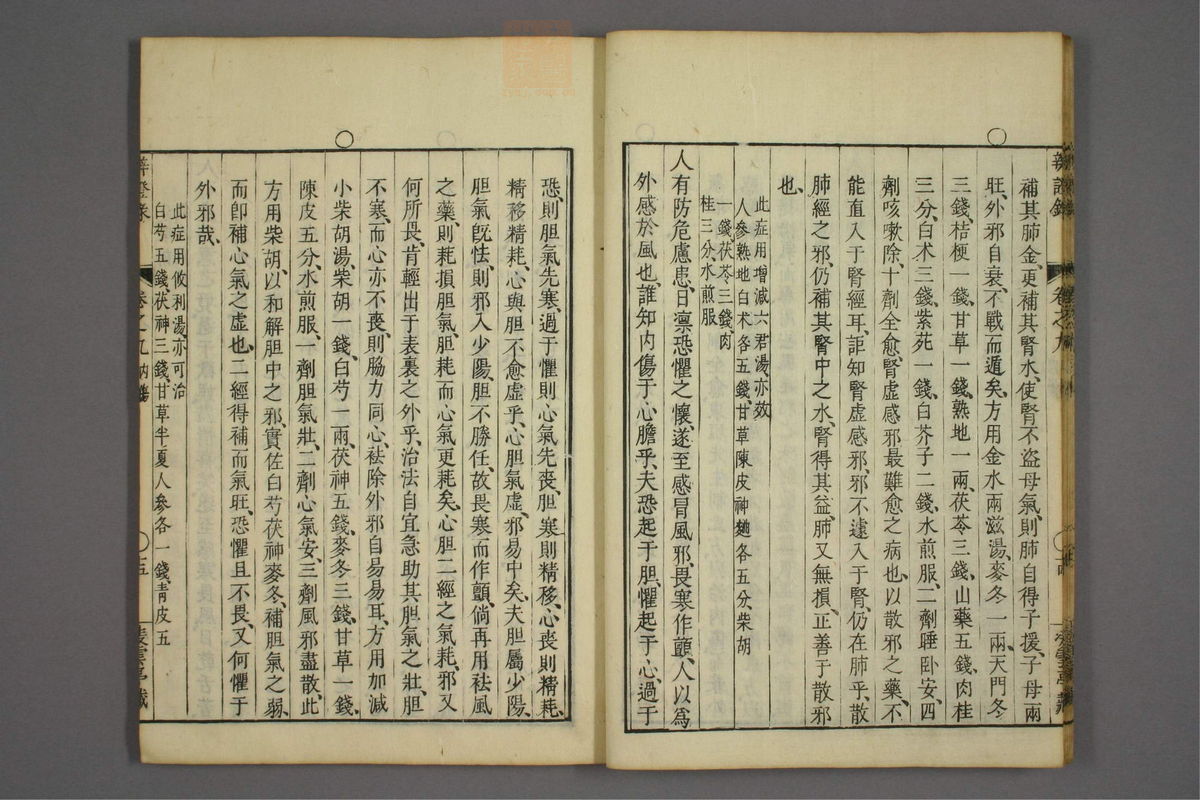 辨證錄
卷之九
補其肺金更補其腎水使腎不盜母氣則肺自得子援子母兩
旺外邪自衰不戰而遁矣方用金水兩滋湯麥冬一兩天門冬
三錢桔梗一錢甘草一錢熟地一兩茯苓三錢山藥五錢肉桂
三分白术三錢紫苑一錢白芥子二錢水煎服二劑睡臥安四
劑咳嗽除十劑全愈腎虛感邪最難愈之病也以散邪之藥不
能直入于腎經耳詎知腎虛感邪邪不遽入于腎仍在肺乎散
肺經之邪仍補其腎中之水腎得其益肺又無損正善于散邪
也
此症用增減六君湯亦效
人參熟地白术各五錢甘草陳皮神麯各五分柴胡
一錢茯苓三錢肉
桂三分水煎服
人有防危慮患日凛恐懼之懷遂至感冒風邪畏寒作顫人以爲
外感於風也誰知內傷于心膽乎夫恐起于胆懼起于心過于
恐則胆氣先寒過于懼則心氣先喪胆寒則精移心喪則精耗
精移精耗心與胆不愈虛乎心胆氣虛邪易中矣夫胆屬少陽
胆氣旣怯則邪入少陽胆不勝任故畏寒而作顫倘再用祛風
之藥則耗損胆氣胆耗而心氣更耗矣心胆二經之氣耗邪又
何所畏肯輕出于表裏之外乎治法自宜急助其胆氣之壯胆
不寒而心亦不喪則脇力同心祛除外邪自易易耳方用加減
小柴胡湯柴胡一錢白芍一兩茯神五錢麥冬三錢甘草一錢
陳皮五分水煎服一劑胆氣壯二劑心氣安三劑風邪盡散此
方用柴胡以和解胆中之邪實佐白芍茯神麥冬補胆氣之弱
而卽補心氣之虛也二經得補而氣旺恐懼且不畏又何懼于
外邪哉
此症用攸利湯亦可治
白芍五錢茯神三錢甘草半夏人參各一錢青皮五
卷之九